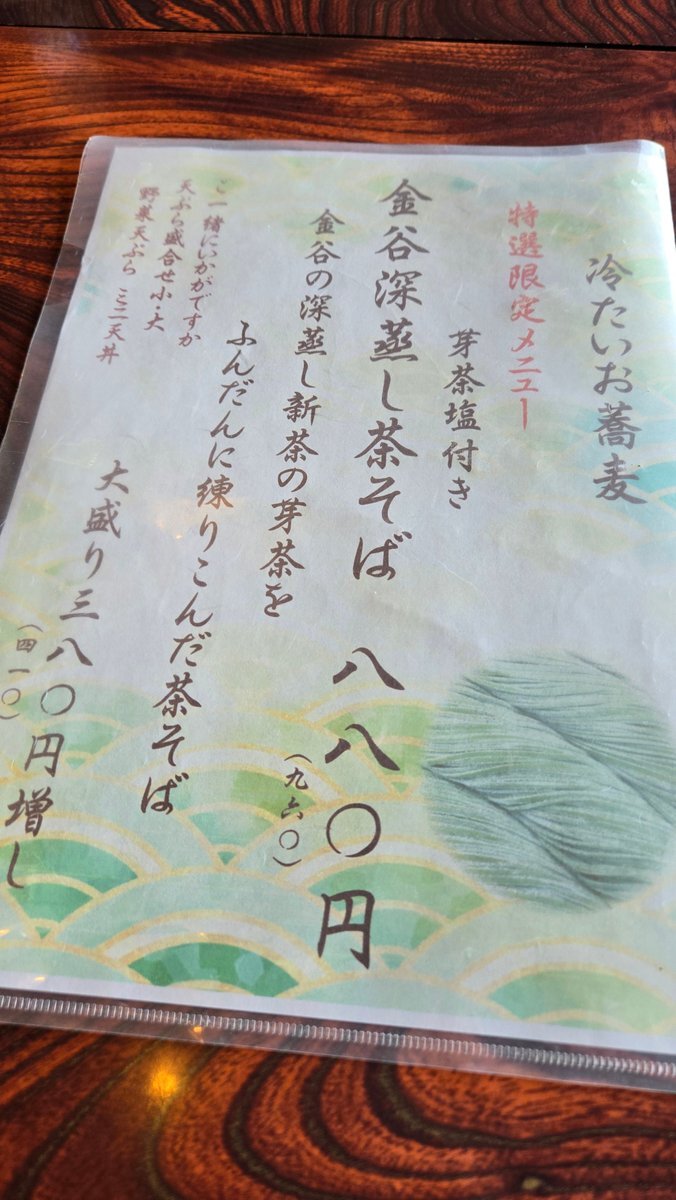 冷たいお蕎麦
特選限定メニュー
芽茶塩付き
金谷深蒸し茶そば 八八〇円
(九六〇)
金谷の深蒸し新茶の芽茶を
ふんだんに練りこんだ茶そば
大盛り三八〇円増し
(四一〇)
ご一緒にいかがですか
天ぷら盛合せ小・大
野菜天ぷら ミニ天丼